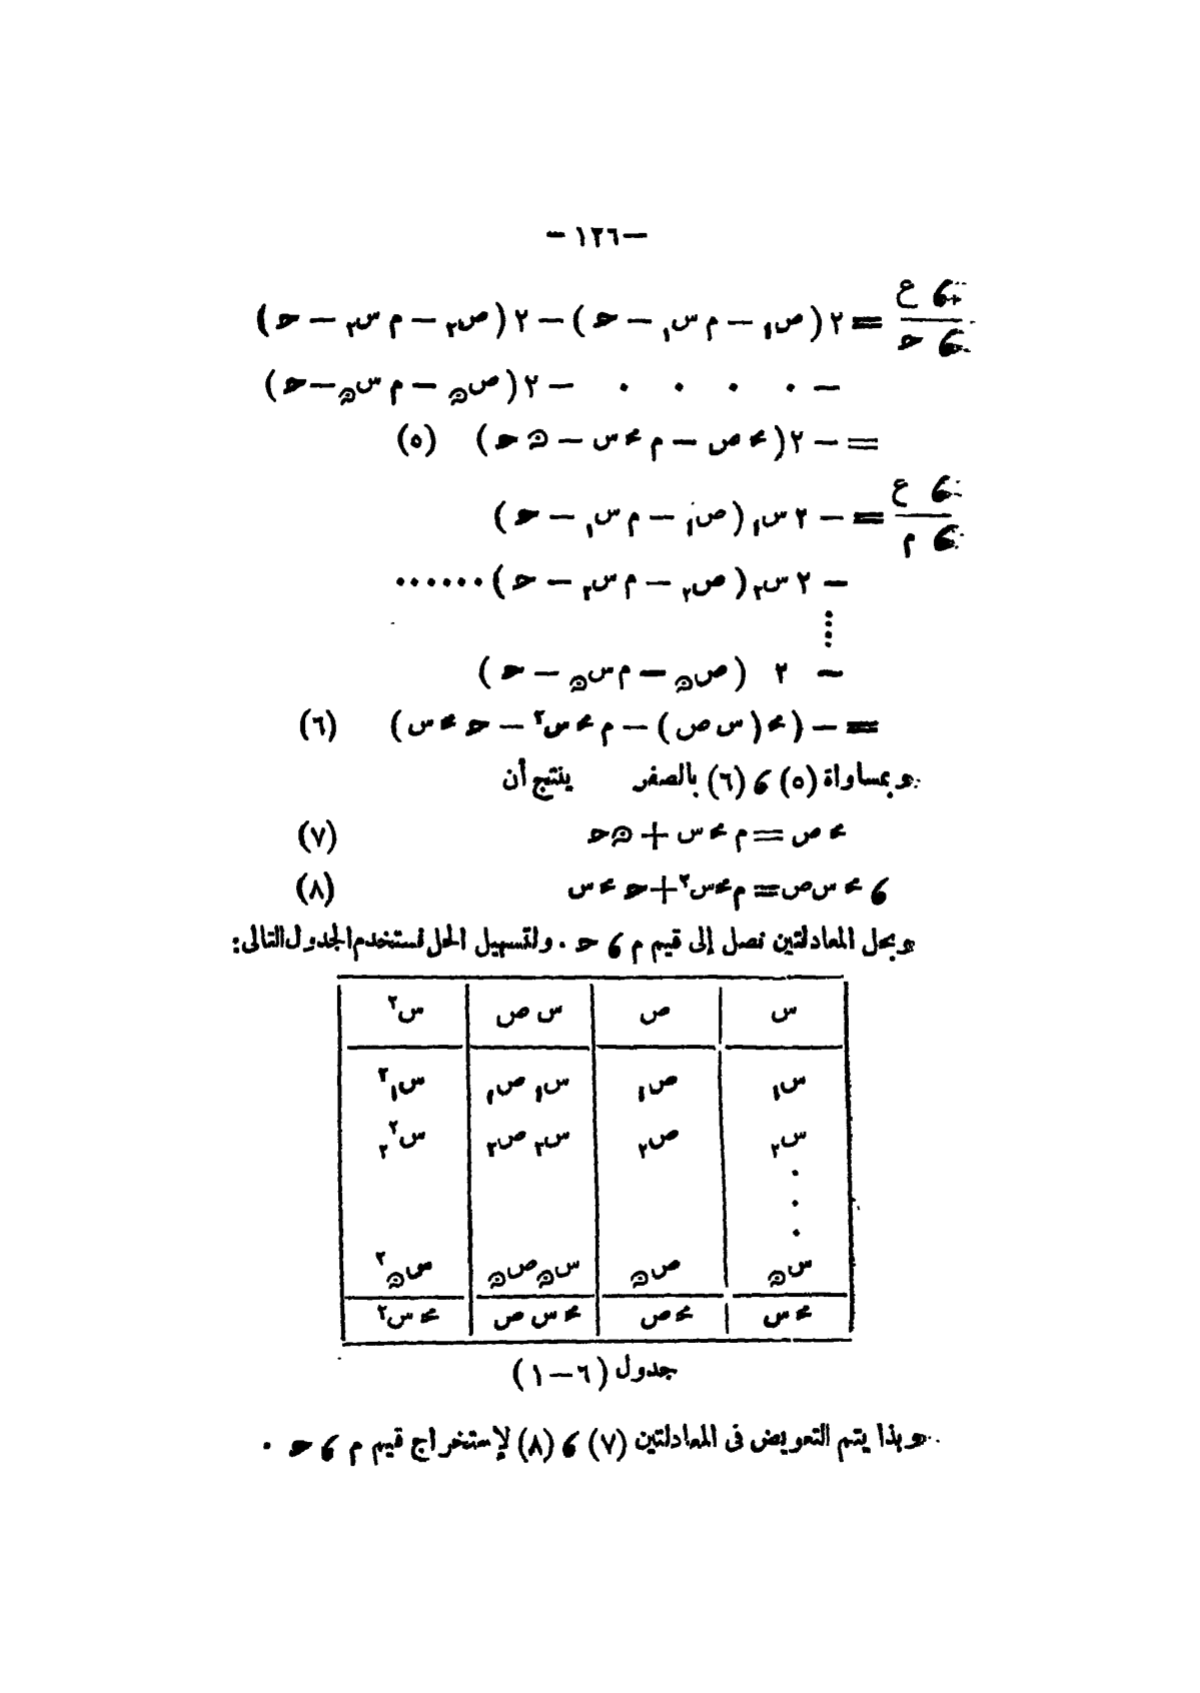 — ١٢٦ —
٦ ع / ٦ حـ = ٢ (ص₁ — م س₁ — حـ) — ٢ (ص₂ — م س₂ — حـ)
— · · · · — ٢ (صن — م سن — حـ)
= — ٢ (محـ ص — م محـ س — ن حـ) (٥)
٦ ع / ٦ م = — ٢ س₁ (ص₁ — م س₁ — حـ)
— ٢ س₂ (ص₂ — م س₂ — حـ) ······
⋮
— ٢ (صن — م سن — حـ)
= — (محـ (س ص) — م محـ س² — حـ محـ س) (٦)
وبمساواة (٥) ، (٦) بالصفر ينتج أن
محـ ص = م محـ س + ن حـ (٧)
، محـ س ص = م محـ س² + حـ محـ س (٨)
وبحل المعادلتين نصل إلى قيم م ، حـ . ولتسهيل الحل نستخدم الجدول التالى :
س ص س ص س²
س₁ ص₁ س₁ ص₁ س₁²
س₂ ص₂ س₂ ص₂ س₂²
·
·
·
سن صن سن صن سن²
محـ س محـ ص محـ س ص محـ س²
جدول (٦ — ١)
وبذا يتم التعويض فى المعادلتين (٧) ، (٨) لإستخراج قيم م ، حـ .